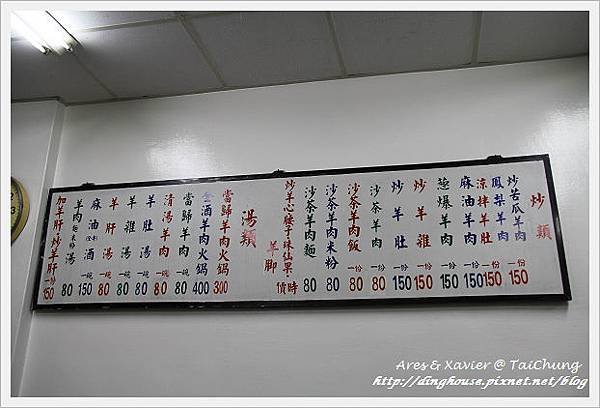 炒類
炒苦瓜羊肉 一份 150
鳳梨羊肉 一份 150
涼拌羊肚 一份 150
麻油羊肉 一份 150
蔥爆羊肉 一份 150
炒羊雜 一份 150
炒羊肚 一份 150
沙茶羊肉 一份 80
沙茶羊肉飯 一份 80
沙茶羊肉米粉 80
沙茶羊肉麵 80
炒羊心腰子珠仙果 羊腳 時價
湯類
當歸羊肉火鍋 300
全酒羊肉火鍋 400
當歸羊肉 一碗 80
清湯羊肉 一碗 80
羊肚湯 一碗 80
羊雜湯 一碗 80
羊肝湯 一碗 80
麻油 酒 150
羊肉 麵 米粉 湯 80
加羊肝炒羊肝 一份 150
Ares & Xavier @ TaiChung
http://dinghouse.pixnet.net/blog